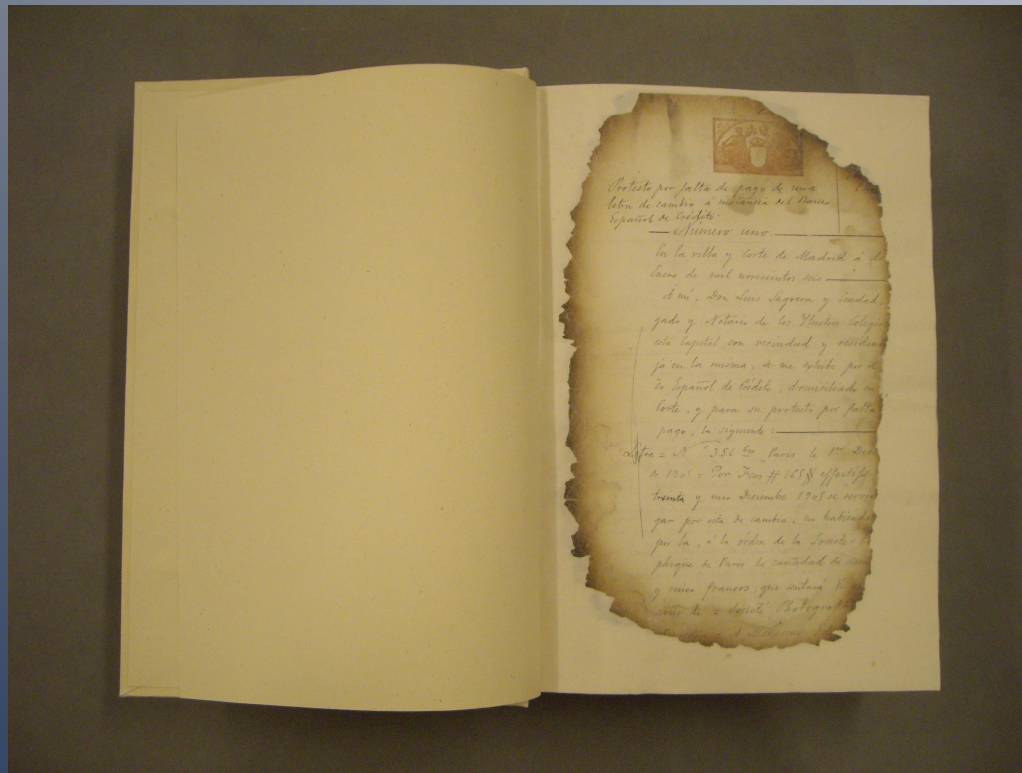 Protesto por falta de pago de una
letra de cambio a instancia del Banco
Español de Crédito.
Numero uno.
En la villa y Corte de Madrid á
Enero de mil novecientos seis
A mi, Don Luis Sagrera y
gado y Notario de los Ylustres Colegio
esta Capital con vecindad y residen
ja en la misma, se me exhibe por el
co Español de Crédito, domiciliado en
Corte, y para su protesto por falta
pago, la siguiente:
Letra = N.º 356 Paris le 1er Dec
de 1905 = Por Fcos # 165 # effectifs
treinta y uno Diciembre 1905 se servir
gar por esta de cambio, no habiendo
por la, á la orden de la Société
phique de Paris la cantidad de
y cinco francos, que sentará
de = Société Photograph